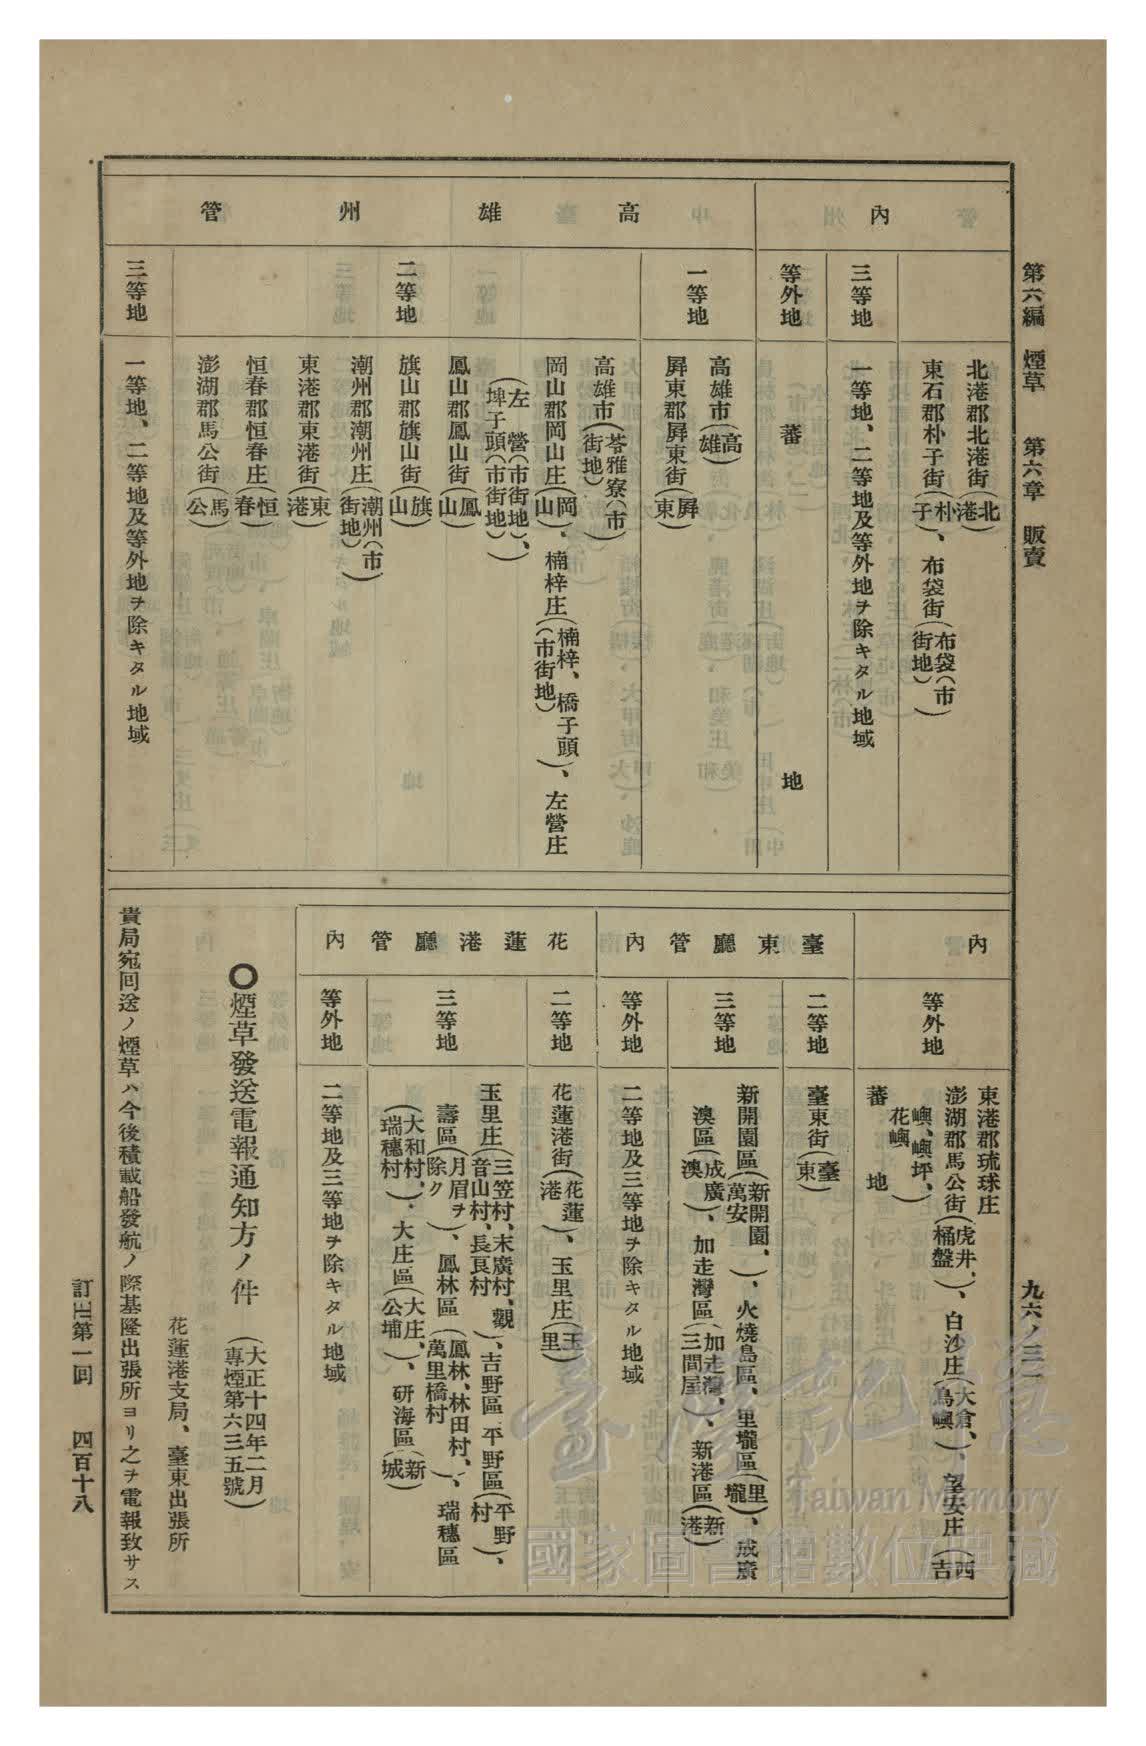 第六編　煙草　　第六章　販賣
九六ノ三二
內
北港郡北港街(北港)
東石郡朴子街(朴子)、布袋街(布袋(市街地))
三等地
一等地、二等地及等外地ヲ除キタル地域
等外地
蕃　地
高雄州管
一等地
高雄市(高雄)
屏東郡屏東街(屏東)
二等地
高雄市(苓雅寮(市街地))
岡山郡岡山庄(岡山)、楠梓庄(楠梓、橋子頭(市街地))、左營庄
(左營(市街地)、埤子頭(市街地))
鳳山郡鳳山街(鳳山)
旗山郡旗山街(旗山)
潮州郡潮州庄(潮州(市街地))
東港郡東港街(東港)
恒春郡恒春庄(恒春)
澎湖郡馬公街(馬公)
三等地
一等地、二等地及等外地ヲ除キタル地域
內
等外地
東港郡琉球庄
澎湖郡馬公街(虎井、桶盤)、白沙庄(大倉、鳥嶼)、望安庄(西吉
嶼、嶼坪、花嶼)
蕃　地
臺東廳管內
二等地
臺東街(臺東)
三等地
新開園區(新開園、萬安)、火燒島區、里壠區(里壠)、成廣
澳區(成廣澳)、加走灣區(加走灣、三間屋)、新港區(新港)
等外地
二等地及三等地ヲ除キタル地域
花蓮港廳管內
二等地
花蓮港街(花蓮港)、玉里庄(玉里)
三等地
玉里庄(三笠村、末廣村、觀音山村、長良村)、吉野區、平野區(平野村)、
壽區(月眉ヲ除ク)、鳳林區(鳳林、林田村、萬里橋村)、瑞穗區
(大和村、瑞穗村)、大庄區(大庄、公埔)、研海區(新城)
等外地
二等地及三等地ヲ除キタル地域
〇煙草發送電報通知方ノ件(大正十四年二月專煙第六三五號)
花蓮港支局、臺東出張所
貴局宛回送ノ煙草ハ今後積載船發航ノ際基隆出張所ヨリ之ヲ電報致サス
訂正第一回　　四百十八
臺灣記憶
Taiwan Memory
國家圖書館數位典藏